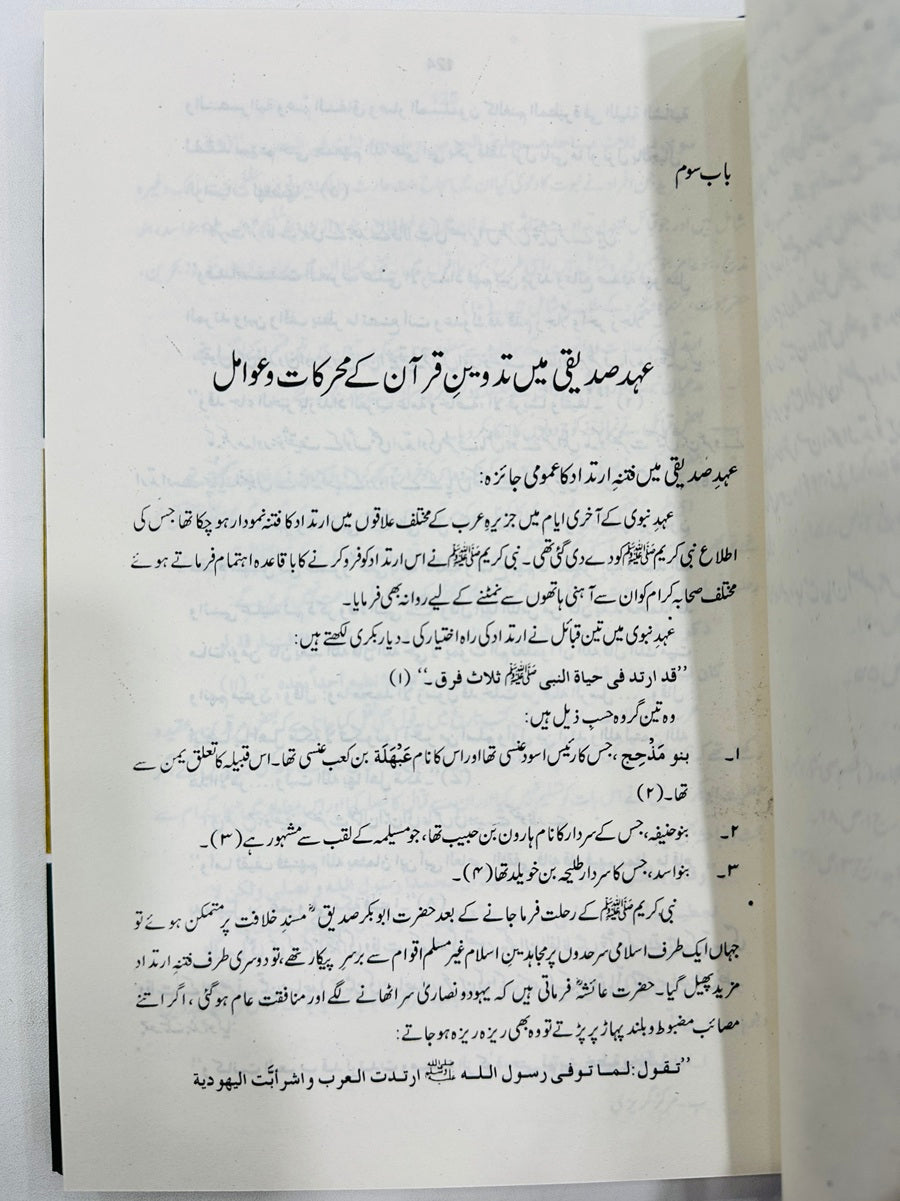 باب سوم
عہد صدیقی میں تدوینِ قرآن کے محرکات و عوامل
عہدِ صدیقی میں فتنہِ ارتداد کا عمومی جائزہ:
عہدِ نبوی کے آخری ایام میں جزیرہِ عرب کے مختلف علاقوں میں ارتداد کا فتنہ نمودار ہو چکا تھا جس کی
اطلاع نبی کریم ﷺ کو دے دی گئی تھی۔ نبی کریم ﷺ نے اس ارتداد کو فرو کرنے کا باقاعدہ اہتمام فرماتے ہوئے
مختلف صحابہ کرام کو ان سے آہنی ہاتھوں سے نمٹنے کے لیے روانہ بھی فرمایا۔
عہدِ نبوی میں تین قبائل نے ارتداد کی راہ اختیار کی۔ دیار بکری لکھتے ہیں:
”قد ارتد فی حیاة النبی ﷺ ثلاث فرق۔“ (۱)
وہ تین گروہ حسبِ ذیل ہیں:
۱۔ بنو مَذْحِج، جس کا رئیس اسود عنسی تھا اور اس کا نام عَبْهَلَة بن کعب عنسی تھا۔ اس قبیلہ کا تعلق یمن سے
تھا۔ (۲)
۲۔ بنو حنیفہ، جس کے سردار کا نام ہارون بن حبیب تھا، جو مسیلمہ کے لقب سے مشہور ہے (۳)۔
۳۔ بنو اسد، جس کا سردار طلیحہ بن خویلد تھا (۴)۔
نبی کریم ﷺ کے رحلت فرما جانے کے بعد حضرت ابوبکر صدیقؓ مسندِ خلافت پر متمکن ہوئے تو
جہاں ایک طرف اسلامی سرحدوں پر مجاہدینِ اسلام غیر مسلم اقوام سے برسرِ پیکار تھے، تو دوسری طرف فتنہِ ارتداد
مزید پھیل گیا۔ حضرت عائشہؓ فرماتی ہیں کہ یہود و نصاریٰ سر اٹھانے لگے اور منافقت عام ہوگئی، اگر اتنے
مصائب مضبوط و بلند پہاڑ پر پڑتے تو وہ بھی ریزہ ریزہ ہو جاتے:
”تقول: لما توفی رسول الله ﷺ ارتدت العرب و اشرأبَّت الیهودیة